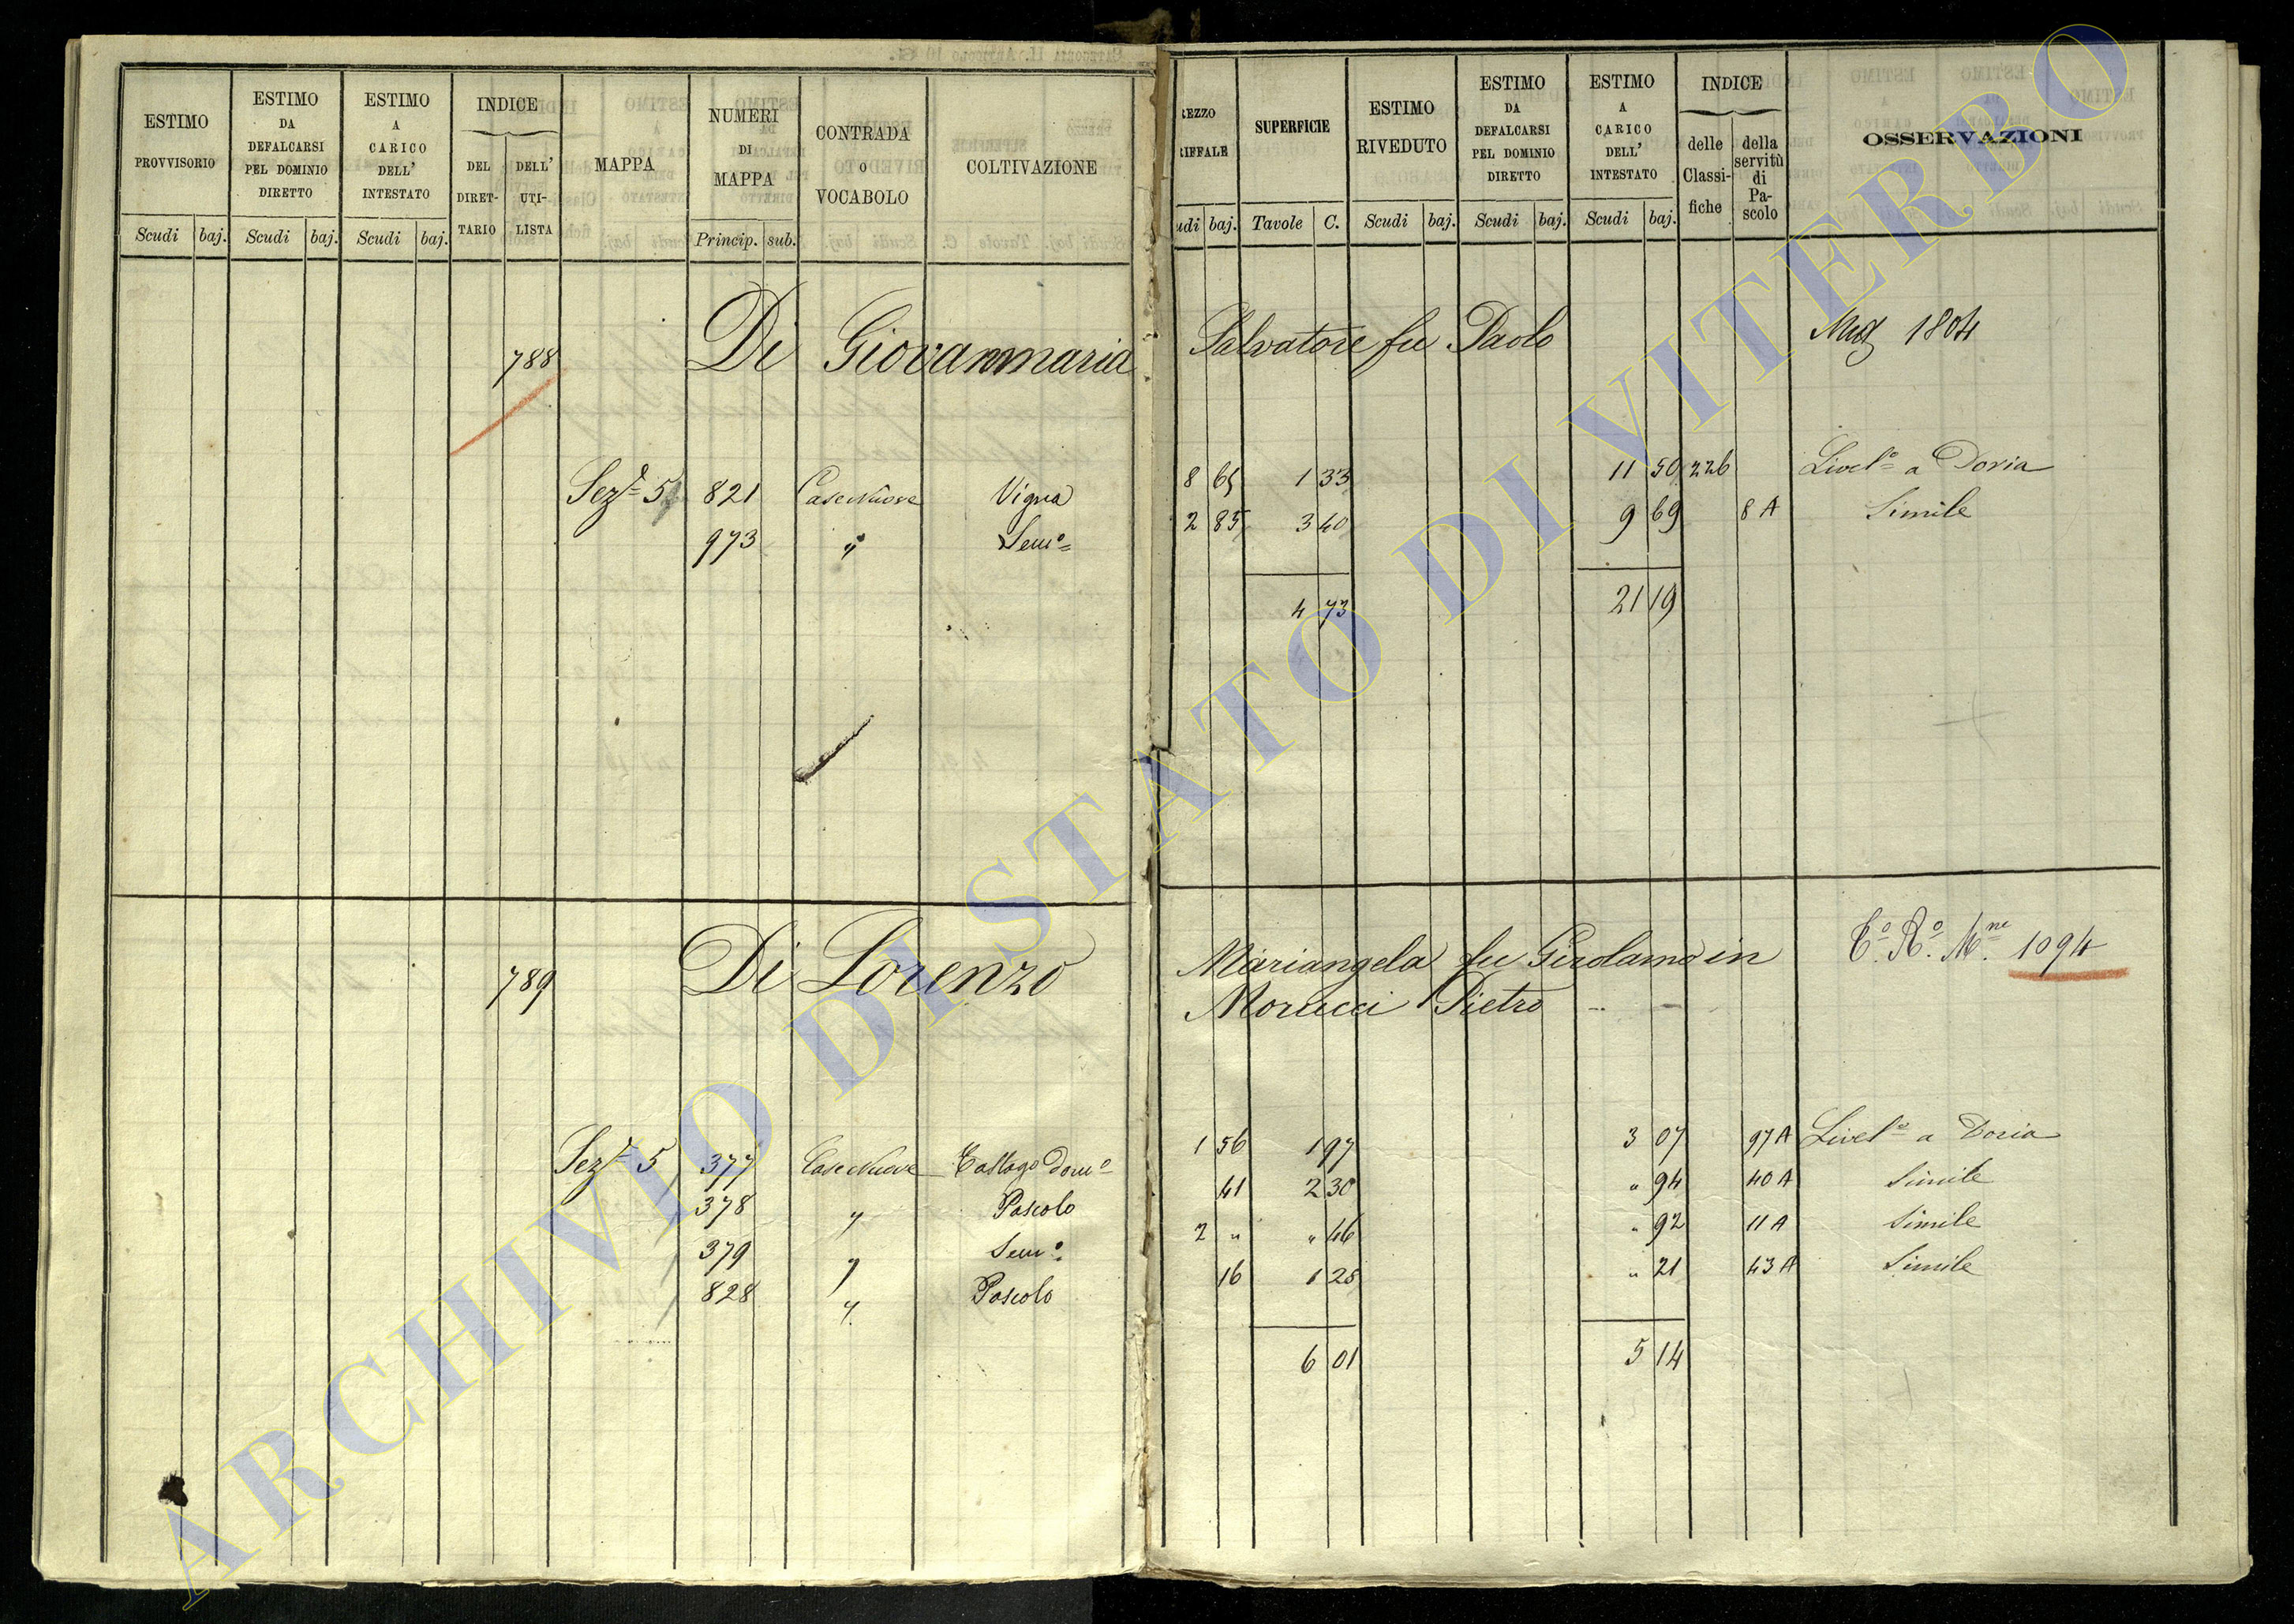 ESTIMO PROVVISORIO
Scudi baj.
ESTIMO DA DEFALCARSI PEL DOMINIO DIRETTO
Scudi baj.
ESTIMO A CARICO DELL' INTESTATO
Scudi baj.
INDICE
DEL DIRET- TARIO
DELL' UTI- LISTA
MAPPA
NUMERI DI MAPPA
Princip. sub.
CONTRADA O VOCABOLO
COLTIVAZIONE
REZZO RIFFALE
udi baj.
SUPERFICIE
Tavole C.
ESTIMO RIVEDUTO
Scudi baj.
ESTIMO DA DEFALCARSI PEL DOMINIO DIRETTO
Scudi baj.
ESTIMO A CARICO DELL' INTESTATO
Scudi baj.
INDICE
delle Classi- fiche
della servitù di Pa- scolo
OSSERVAZIONI
788 Di Giovannmaria Salvatore fu Paolo 1804
Seze 5 821 Case Nuove Vigna 8 65 1 33 11 50 226 Livelo a Doria
973 " Semo 2 85 3 40 9 69 8 A Simile
4 73 21 19
789 Di Lorenzo Mariangela fu Girolamo in To. Ro. Mne. 1094
Morucci Pietro
Sezе 5 377 Case Nuove Castago Domo 1 56 1 97 3 07 97 A Livelo a Doria
378 " Pascolo 41 2 30 " 94 40 A Simile
379 " Semo 2 " " 46 " 92 11 A Simile
828 " Pascolo 16 1 28 " 21 43 A Simile
6 01 5 14
ARCHIVIO DI STATO DI VITERBO